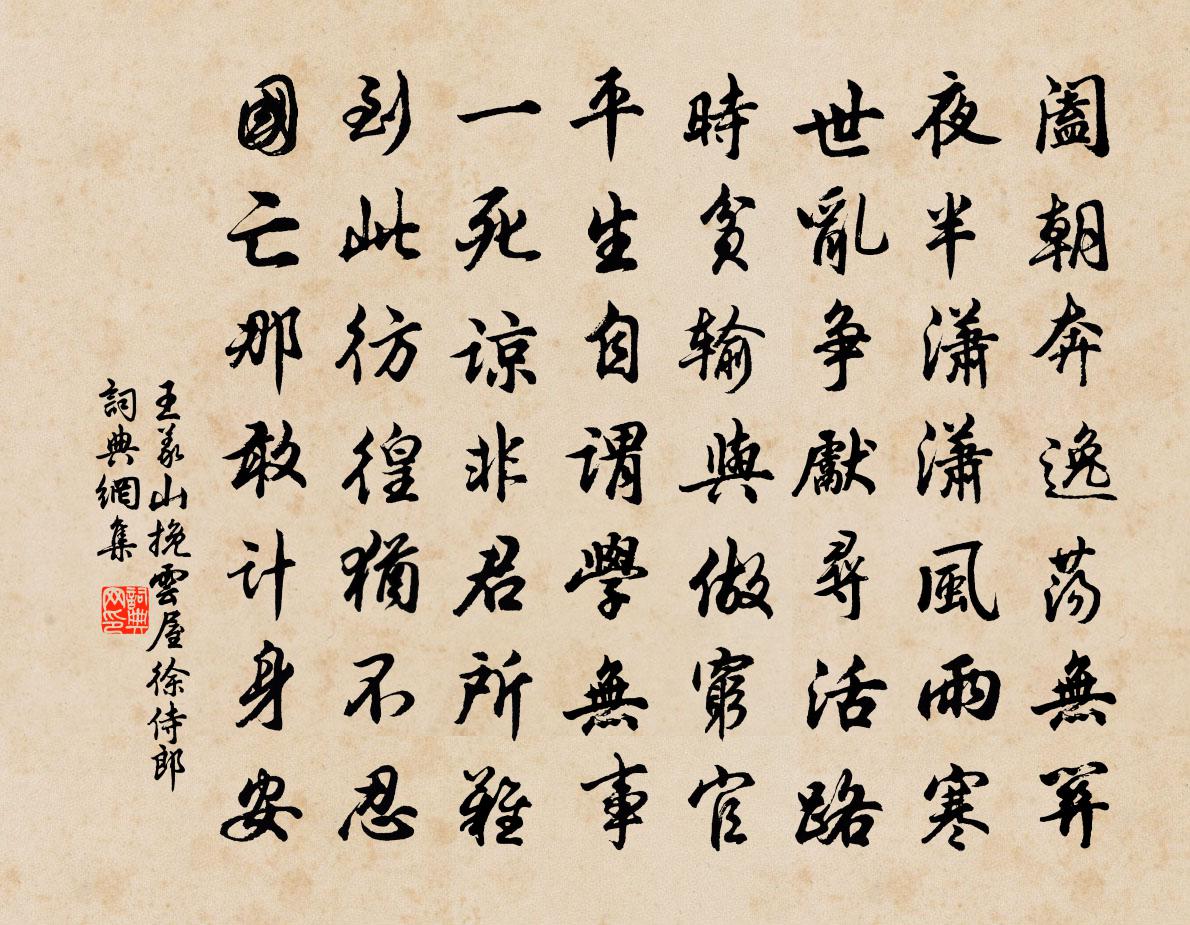 闔朝奔逸荡無關
夜半瀟瀟風雨寒
世亂争獻尋活路
時貧輸與做窮官
平生自謂學無事
一死諒非君所難
到此彷徨猶不忍
國亡那敢計身安
王義山挽雲屋徐侍郎
詞典網集
詞典网印